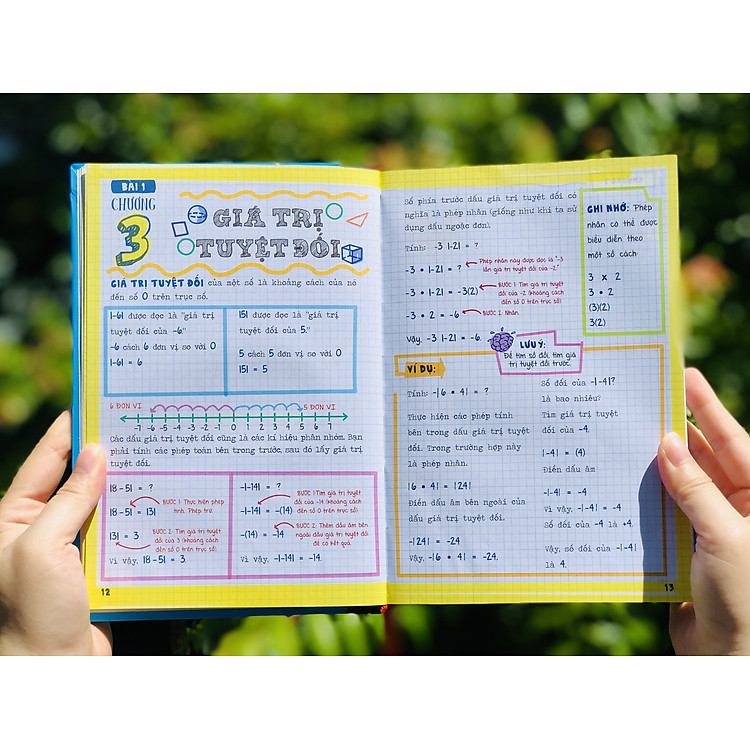 BÀI 1
CHƯƠNG
3
GIÁ TRỊ
TUYỆT ĐỐI
GIÁ TRỊ TUYỆT ĐỐI của một số là khoảng cách của nó
đến số 0 trên trục số.
|-6| được đọc là "giá trị
tuyệt đối của -6."
-6 cách 6 đơn vị so với 0
|-6| = 6
|5| được đọc là "giá trị
tuyệt đối của 5."
5 cách 5 đơn vị so với 0
|5| = 5
6 ĐƠN VỊ
5 ĐƠN VỊ
-7 -6 -5 -4 -3 -2 -1 0 1 2 3 4 5 6 7
Các dấu giá trị tuyệt đối cũng là các kí hiệu phân nhóm. Bạn
phải tính các phép toán bên trong trước, sau đó lấy giá trị
tuyệt đối.
|8 - 5| = ?
BƯỚC 1: Thực hiện phép
tính. Phép trừ.
|8 - 5| = |3|
BƯỚC 2: Tìm giá trị tuyệt
đối của 3 (khoảng cách
đến số 0 trên trục số).
|3| = 3
Vì vậy, |8 - 5| = 3.
-|-14| = ?
BƯỚC 1: Tìm giá trị tuyệt
đối của -14 (khoảng cách
đến số 0 trên trục số).
-|-14| = -(14)
BƯỚC 2: Thêm dấu âm bên
ngoài dấu giá trị tuyệt đối
để có kết quả.
-(14) = -14
Vì vậy, -|-14| = -14.
12
Số phía trước dấu giá trị tuyệt đối có
nghĩa là phép nhân (giống như khi ta sử
dụng dấu ngoặc đơn).
Tính: -3 |-2| = ?
-3 • |-2| = ?
Phép nhân này được đọc là "-3
lần giá trị tuyệt đối của -2."
-3 • |-2| = -3(2)
BƯỚC 1: Tìm giá trị tuyệt đối
của -2 (khoảng cách
đến số 0 trên trục số).
-3 • 2 = -6
BƯỚC 2: Nhân.
Vậy, -3 |-2| = -6.
GHI NHỚ: Phép
nhân có thể được
biểu diễn theo
một số cách:
3 x 2
3 • 2
(3)(2)
3(2)
LƯU Ý:
Để tìm số đối, tìm giá
trị tuyệt đối trước.
VÍ DỤ:
Tính: -|6 • 4| = ?
Thực hiện các phép tính
bên trong dấu giá trị tuyệt
đối. Trong trường hợp này
là phép nhân.
|6 • 4| = |24|
Điền dấu âm bên ngoài của
dấu giá trị tuyệt đối.
-|24| = -24
Vậy, -|6 • 4| = -24.
Số đối của -|-4|?
là bao nhiêu?
Tìm giá trị tuyệt
đối của -4.
|-4| = (4)
Điền dấu âm
-|-4| = -4
Vì vậy, -|-4| = -4
Số đối của -4 là +4.
Vậy, số đối của -|-4|
là 4.
13